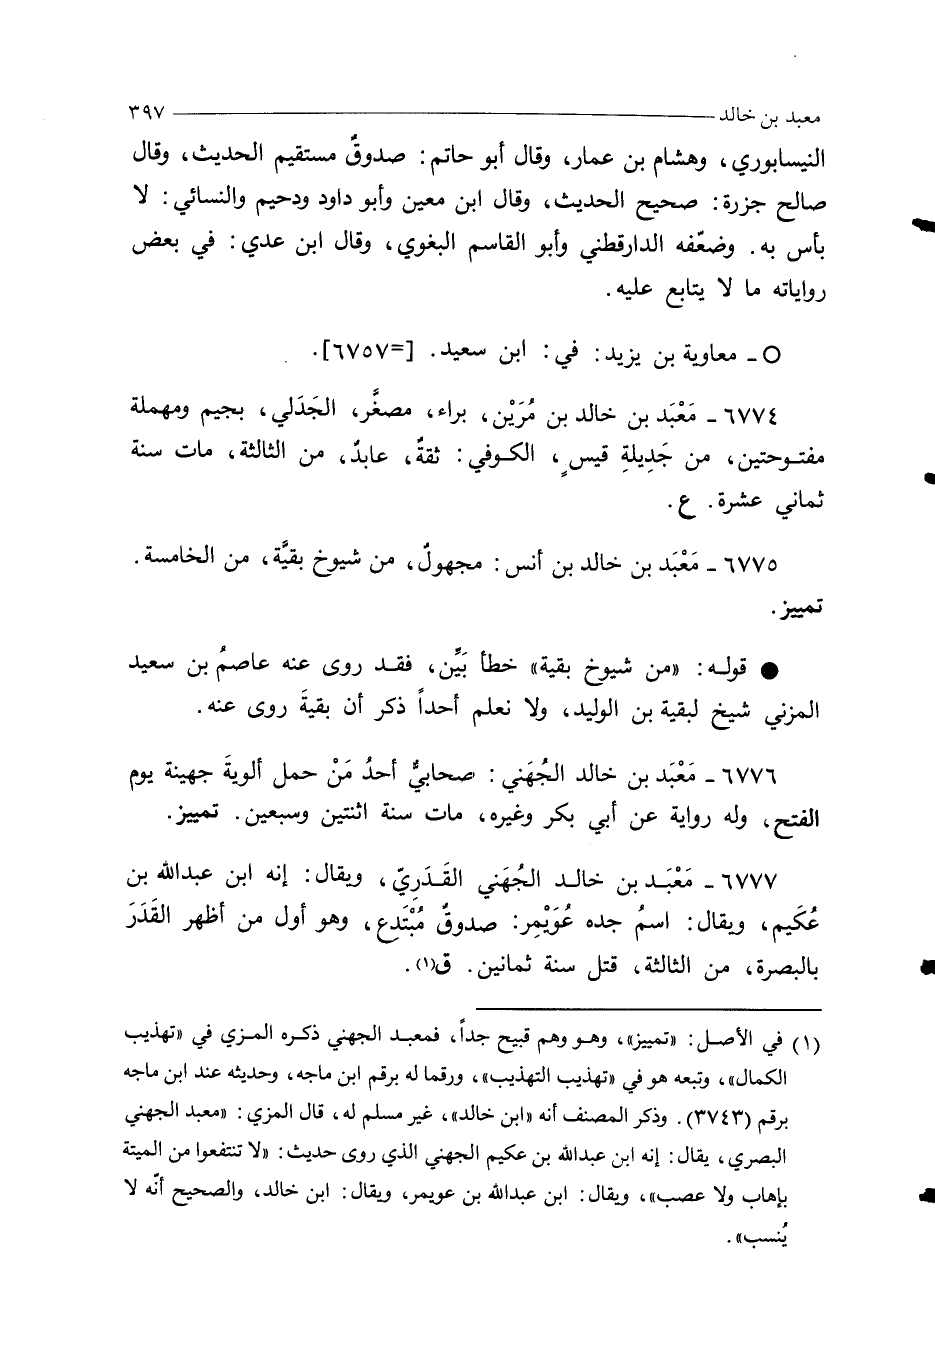 معبد بن خالد ٣٩٧
النيسابوري، وهشام بن عمار، وقال أبو حاتم: صدوقٌ مستقيم الحديث، وقال
صالح جزرة: صحيح الحديث، وقال ابن معين وأبو داود ودحيم والنسائي: لا
بأس به. وضعّفه الدارقطني وأبو القاسم البغوي، وقال ابن عدي: في بعض
رواياته ما لا يتابع عليه.
○ ـ معاوية بن يزيد: في: ابن سعيد. [=٦٧٥٧].
٦٧٧٤ ـ مَعْبَد بن خالد بن مُرَيْن، براء، مصغَّر، الجَدَلي، بجيم ومهملة
مفتـوحتين، من جَدِيلةِ قيسٍ، الكـوفي: ثقةٌ، عابدٌ، من الثالثة، مات سنة
ثماني عشرة. ع.
٦٧٧٥ ـ مَعْبَد بن خالد بن أنس: مجهولٌ، من شيوخ بقيَّة، من الخامسة.
تمييز.
● قولـه: «من شيوخ بقية» خطأ بَيِّن، فقـد روى عنه عاصمُ بن سعيد
المزني شيخ لبقية بن الوليد، ولا نعلم أحداً ذكر أن بقيةَ روى عنه.
٦٧٧٦ ـ مَعْبَد بن خالد الجُهَني: صحابيٌّ أحدُ مَنْ حمل ألويةَ جهينة يوم
الفتح، وله رواية عن أبي بكر وغيره، مات سنة اثنتين وسبعين. تمييز.
٦٧٧٧ ـ مَعْبَـد بن خالـد الجُهَني القَـدَريّ، ويقال: إنه ابن عبدالله بن
عُكَيم، ويقال: اسمُ جده عُوَيْمِر: صدوقٌ مُبْتَدِع، وهو أول من أظهر القَدَرَ
بالبصرة، من الثالثة، قتل سنة ثمانين. ق(١).
(١) في الأصـل: «تمييز»، وهـو وهم قبيح جداً، فمعبـد الجهني ذكـره المـزي في «تهذيب
الكمال»، وتبعه هو في «تهذيب التهذيب»، ورقما له برقم ابن ماجه، وحديثه عند ابن ماجه
برقم (٣٧٤٣). وذكر المصنف أنه «ابن خالد»، غير مسلم له، قال المزي: «معبد الجهني
البصري، يقال: إنه ابن عبدالله بن عكيم الجهني الذي روى حديث: «لا تنتفعوا من الميتة
بإهاب ولا عصب»، ويقال: ابن عبدالله بن عويمر، ويقال: ابن خالد، والصحيح أنّه لا
يُنسب».